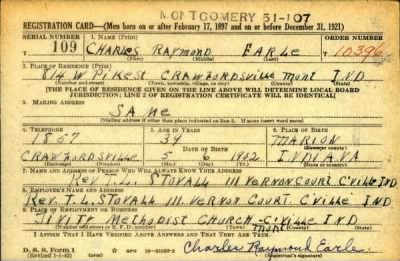 MONTGOMERY 51-107
REGISTRATION CARD—(Men born on or after February 17, 1897 and on or before December 31, 1921)
SERIAL NUMBER 1. NAME (Print) ORDER NUMBER
109 CHARLES RAYMOND EARLE T 10396
(First) (Middle) (Last)
2. PLACE OF RESIDENCE (Print)
814 W PIKE ST CRAWFORDSVILLE MONT IND
(Number and street) (Town, township, village, or city) (County) (State)
[THE PLACE OF RESIDENCE GIVEN ON THE LINE ABOVE WILL DETERMINE LOCAL BOARD
JURISDICTION; LINE 2 OF REGISTRATION CERTIFICATE WILL BE IDENTICAL]
3. MAILING ADDRESS
SAME
[Mailing address if other than place indicated on line 2. If same insert word same]
4. TELEPHONE 5. AGE IN YEARS 6. PLACE OF BIRTH
1867 39 MARION
DATE OF BIRTH (Town or county)
CRAWFORDSVILLE 5 6 1902 INDIANA
(Exchange) (Number) (Mo.) (Day) (Yr.) (State or country)
7. NAME AND ADDRESS OF PERSON WHO WILL ALWAYS KNOW YOUR ADDRESS
REV. T.L. STOVALL 111 VERNON COURT C'VILLE IND
8. EMPLOYER'S NAME AND ADDRESS
REV. T.L. STOVALL 111 VERNON COURT C'VILLE IND
9. PLACE OF EMPLOYMENT OR BUSINESS
METHODIST CHURCH - C'VILLE IND
(Number and street or R. F. D. number) (Town) MONT (County) (State)
I AFFIRM THAT I HAVE VERIFIED ABOVE ANSWERS AND THAT THEY ARE TRUE.
D. S. S. Form 1
(Revised 1-1-42) (over)
Charles Raymond Earle
(Registrant's signature)